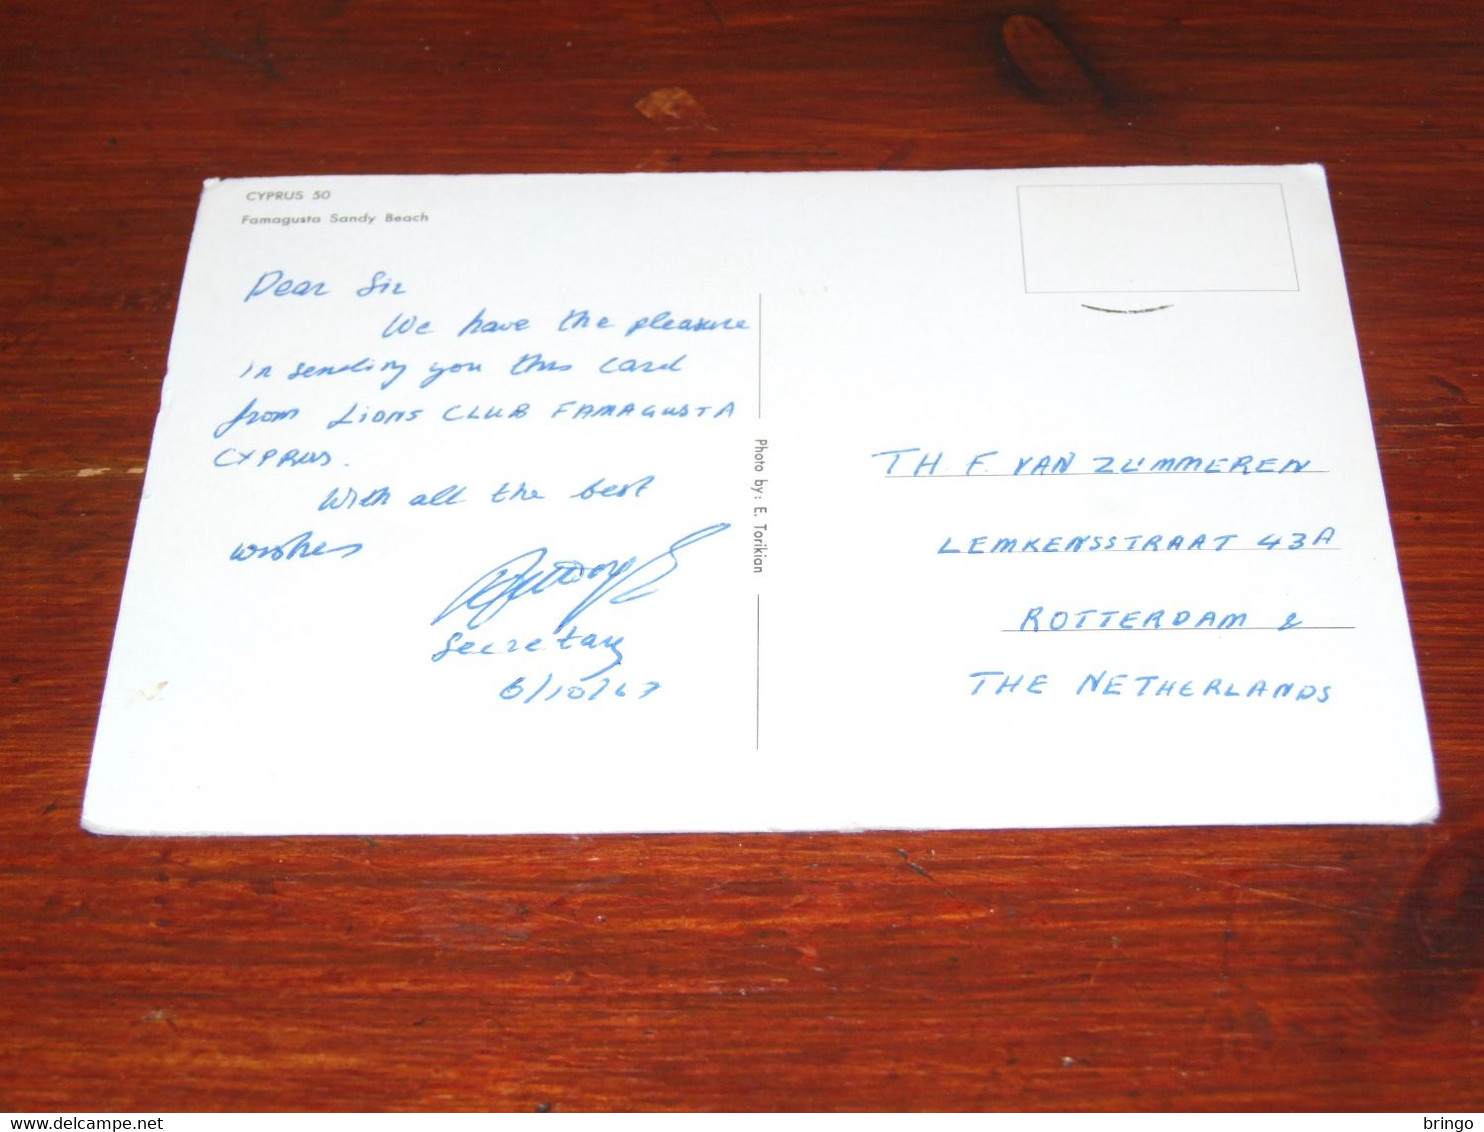 CYPRUS 50
Famagusta Sandy Beach
Dear Sir
We have the pleasure
in sending you this card
from LIONS CLUB FAMAGUSTA
CYPRUS.
With all the best
wishes
Secretary
6/10/67
Photo by: E. Torikian
TH. F. VAN ZUMMEREN
LEMKENSSTRAAT 43A
ROTTERDAM 2
THE NETHERLANDS
delcampe.net
bringo